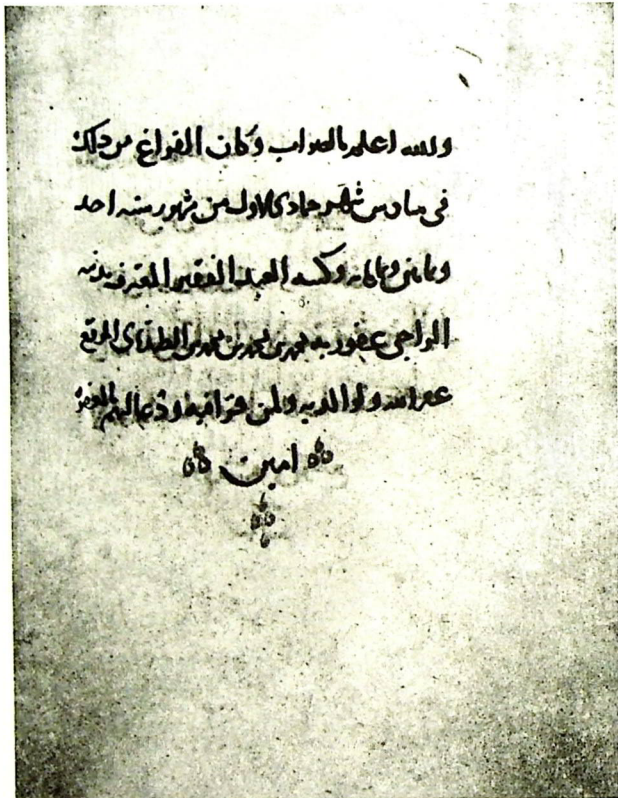 والله اعلم بالصواب وكان الفراغ من ذلك
فى سادس شهر جمادى الاول من شهور سنه احد
وثمانين وثمانمايه وكتبه العبد الفقير المعترف بذنبه
الراجى عفو ربه محمد بن محمد بن محمد بن
غفر الله له ولوالديه ولمن قرا فيه ودعا لهم بالمغفرة
امين